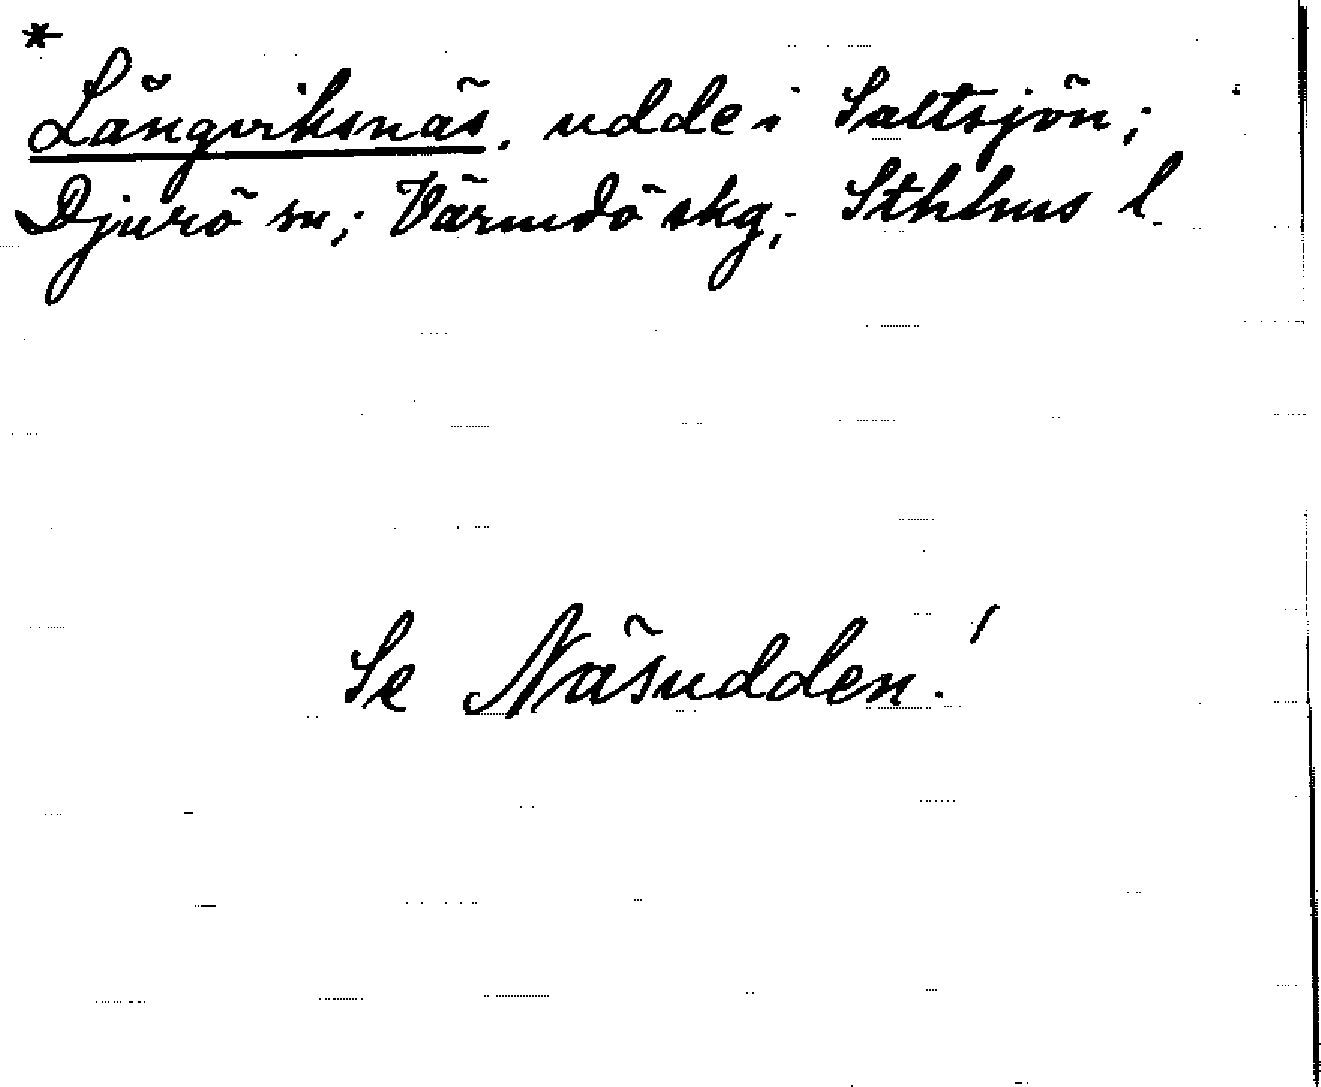 *
Långviksnäs, udde i Saltsjön;
Djurö sn; Värmdö skg; Sthlms l.
Se Näsudden!